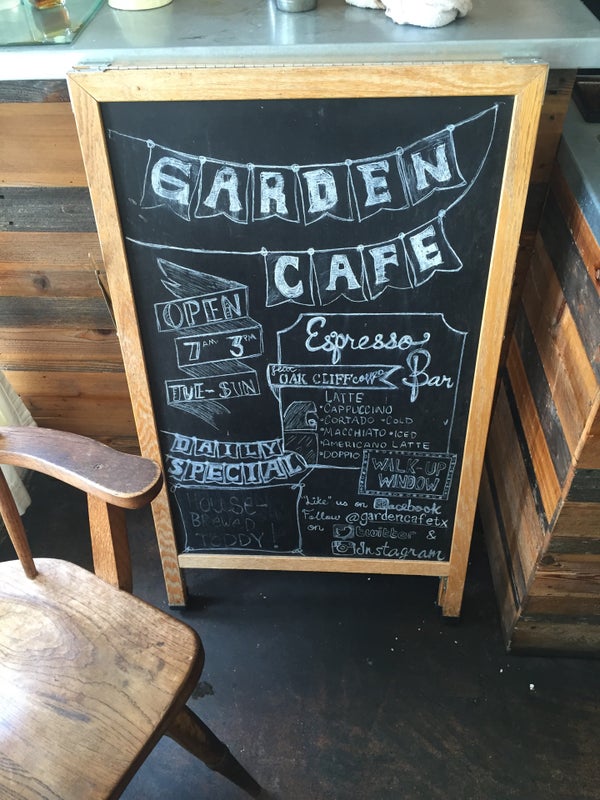 GARDEN
CAFE
OPEN
7AM 3PM
TUE-SUN
Espresso
Bar
feat.
OAK CLIFF COFFEE
LATTE
•CAPPUCCINO
•CORTADO •COLD
•MACCHIATO •ICED
•AMERICANO LATTE
•DOPPIO
WALK-UP
WINDOW
DAILY
SPECIAL
HOUSE-
BREWED
TODDY!
"Like" us on facebook
Follow @gardencafetx
on twitter &
Instagram